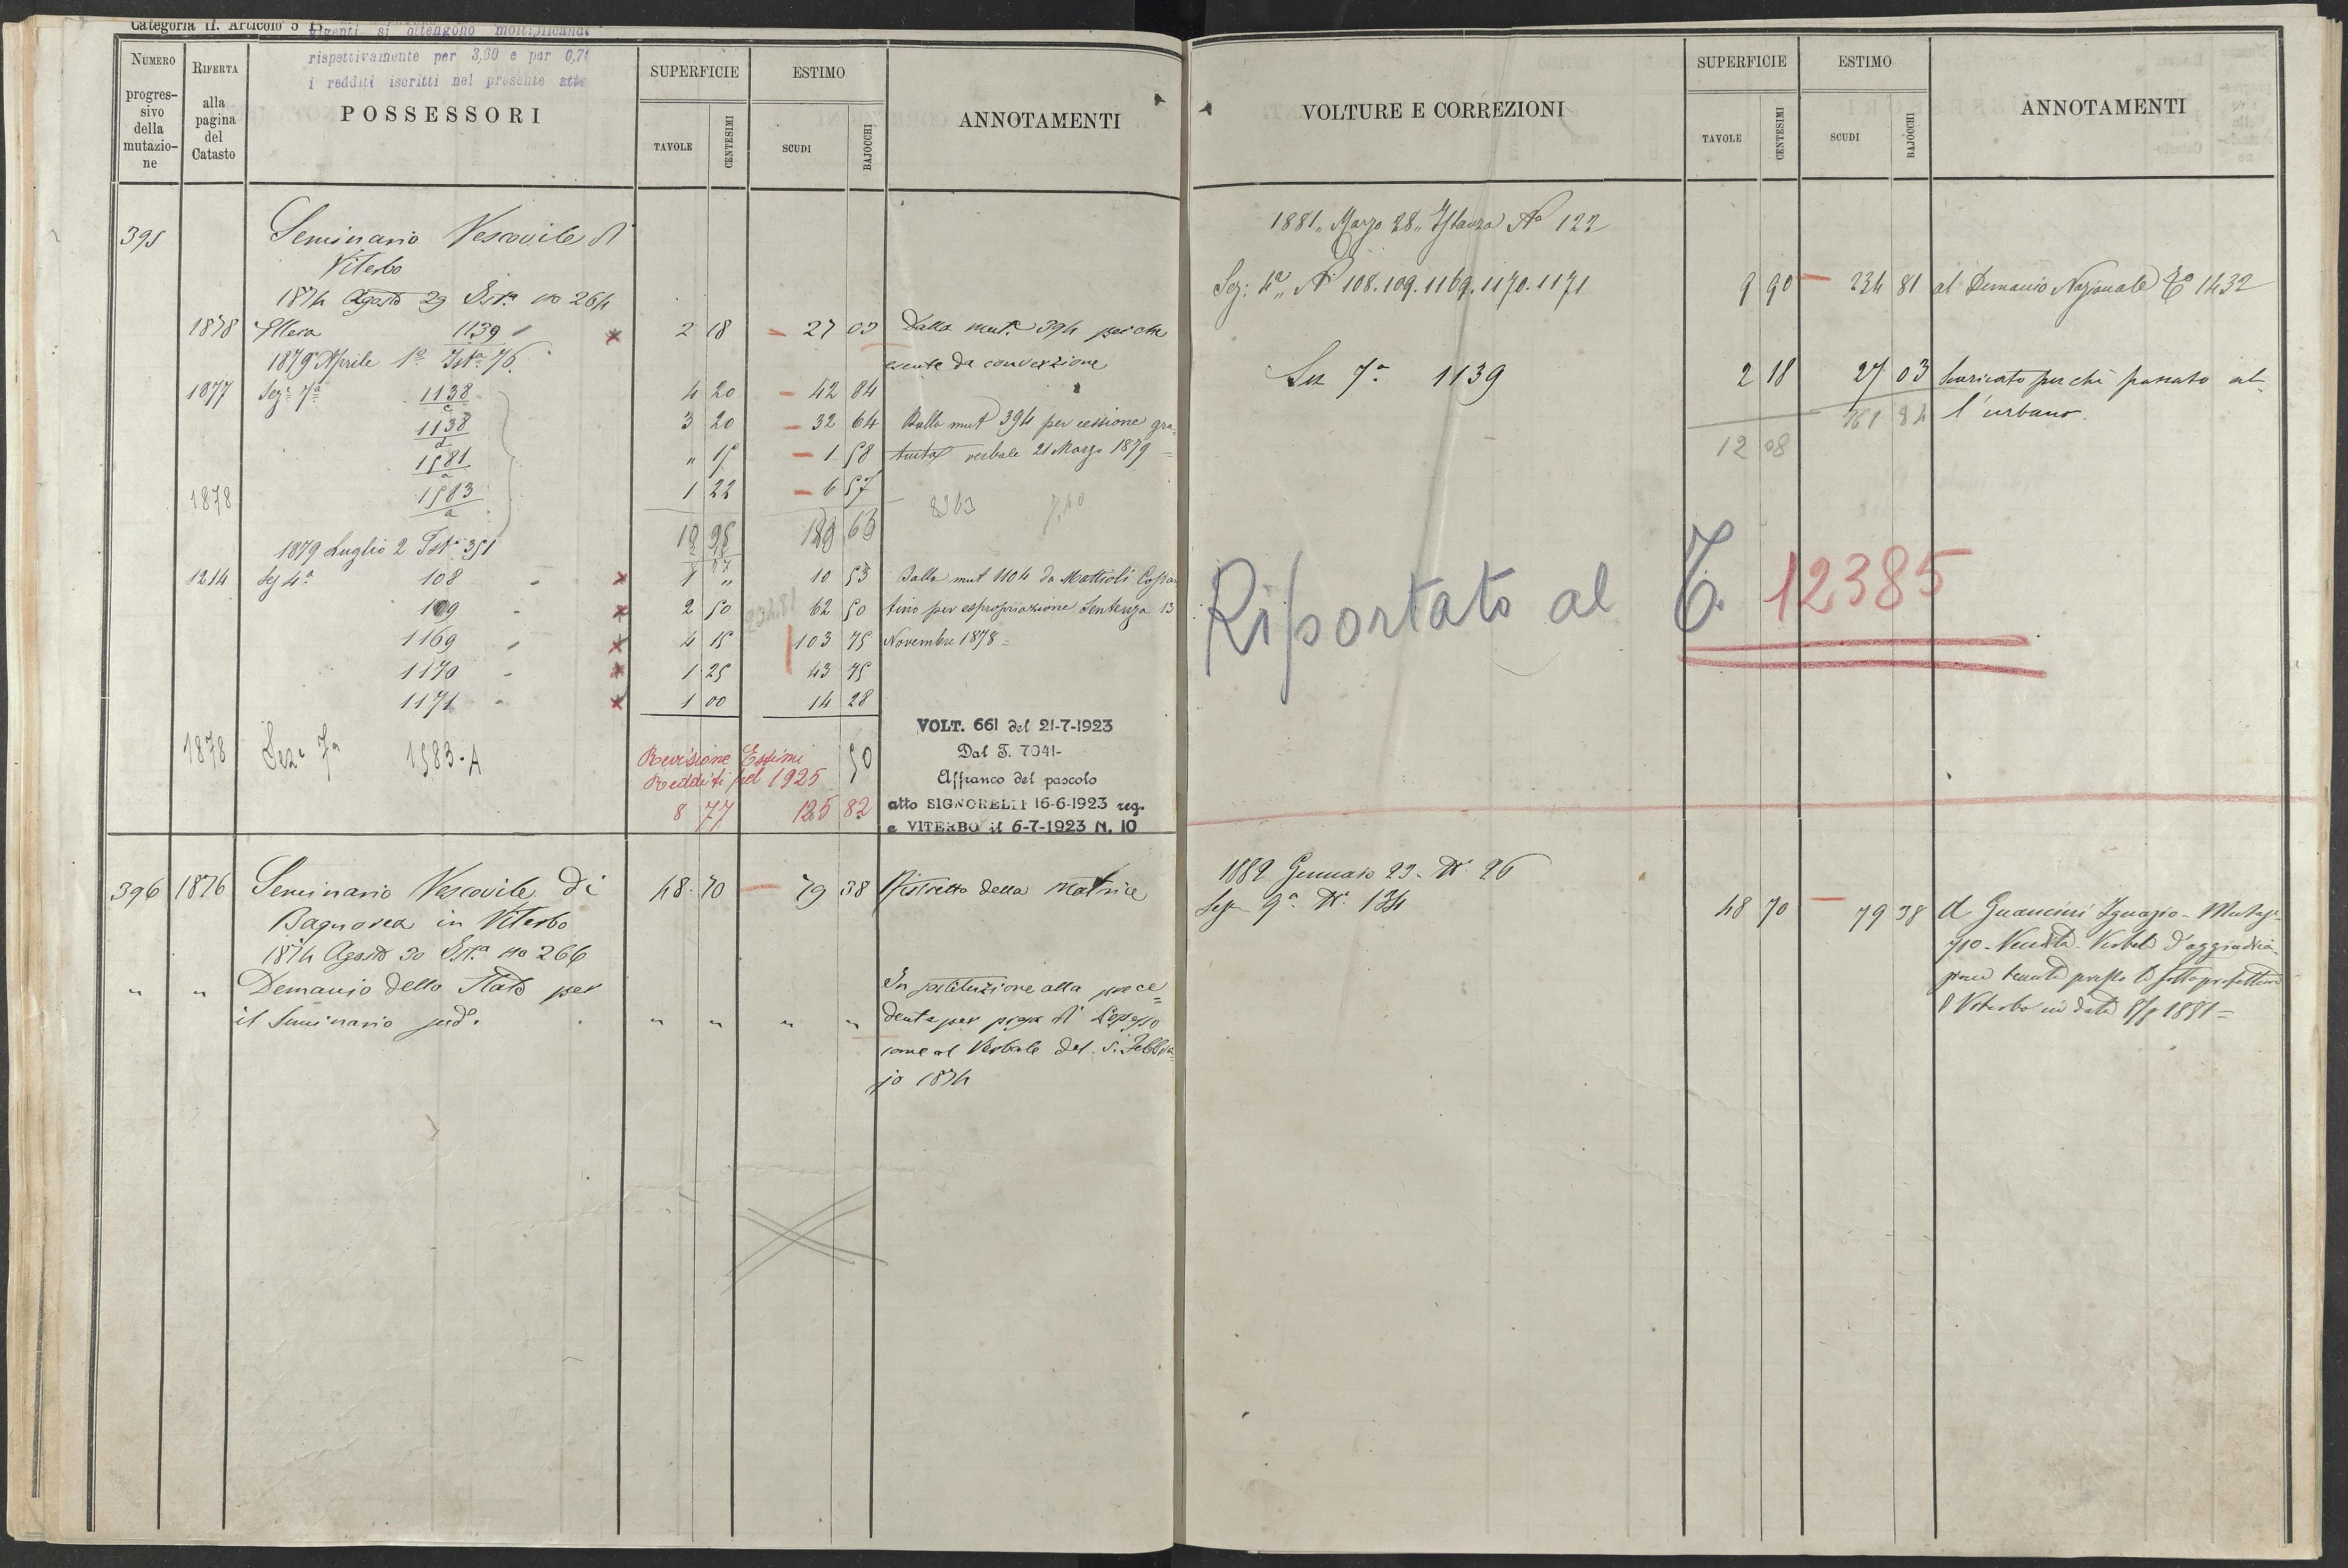 Categoria II. Articolo 5
si ottengono moltiplicando
rispettivamente per 3,60 e per 0,7
i redditi iscritti nel presente atto
NUMERO progressivo della mutazione
RIFERTA alla pagina del Catasto
POSSESSORI
SUPERFICIE
TAVOLE
CENTESIMI
ESTIMO
SCUDI
BAJOCCHI
ANNOTAMENTI
395
Seminario Vescovile di
Viterbo
1874 Agosto 29 Ist.a no 264
1878 1139 2 18 27 03 Dalla mut.e 394 perche
esente da conversione
1879 Aprile 1° Ist.a 76
1877 Sez.e 7a 1138 c 4 20 42 84
1138 d 3 20 32 64 Dalla mut 394 per cessione gra=
1581 a " 15 1 58 tuita verbale 21 Marzo 1879 =
1878 1583 a 1 22 6 57
8363
63
1879 Luglio 2 Ist.a 351
1214 Sez 4a 108 1 " 10 53 Dalla mut 1104 da Mattioli
109 2 50 62 50 tino per espropriazione Sentenza 13
234.81
1169 4 15 103 75 Novembre 1878 =
1170 1 25 43 75
1171 1 00 14 28
1878 Seze 7a 1583-A 50
Revisione Estimi
Redditi pel 1925
8 77 125 82
VOLT. 661 del 21-7-1923
Dal T. 7041-
Affranco del pascolo
atto SIGNORELLI 16-6-1923 reg.
a VITERBO il 6-7-1923 N. 10
396 1876 Seminario Vescovile di 48 70 79 38 Ristretto della Matrice
Bagnorea in Viterbo
1874 Agosto 30 Ist.a no 266
" " Demanio dello Stato per In sostituzione alla prece=
il Seminario sud.o " " " " dente per presa di possesso
come al Verbale del 5. Febbra=
jo 1874
VOLTURE E CORREZIONI
SUPERFICIE
TAVOLE
CENTESIMI
ESTIMO
SCUDI
BAJOCCHI
ANNOTAMENTI
1881 " Marzo 28 " Istanza No 122
Sez: 4a " Ni 108. 109. 1169. 1170. 1171 9 90 234 81 al Demanio Nazionale To 1432
Sez 7a 1139 2 18 27 03 Scaricato perchè passato al=
l'urbano.
12 08 261 84
Riportato al T. 12385
1882 Gennaio 23. N. 26
Sez. 9a N. 134 48 70 79 38 A Guancini Ignazio - Mutaz.e
710 - Vendita - Verbale d'aggiudica=
zione tenuta presso la sottoprefettura
Viterbo in data 1881 =